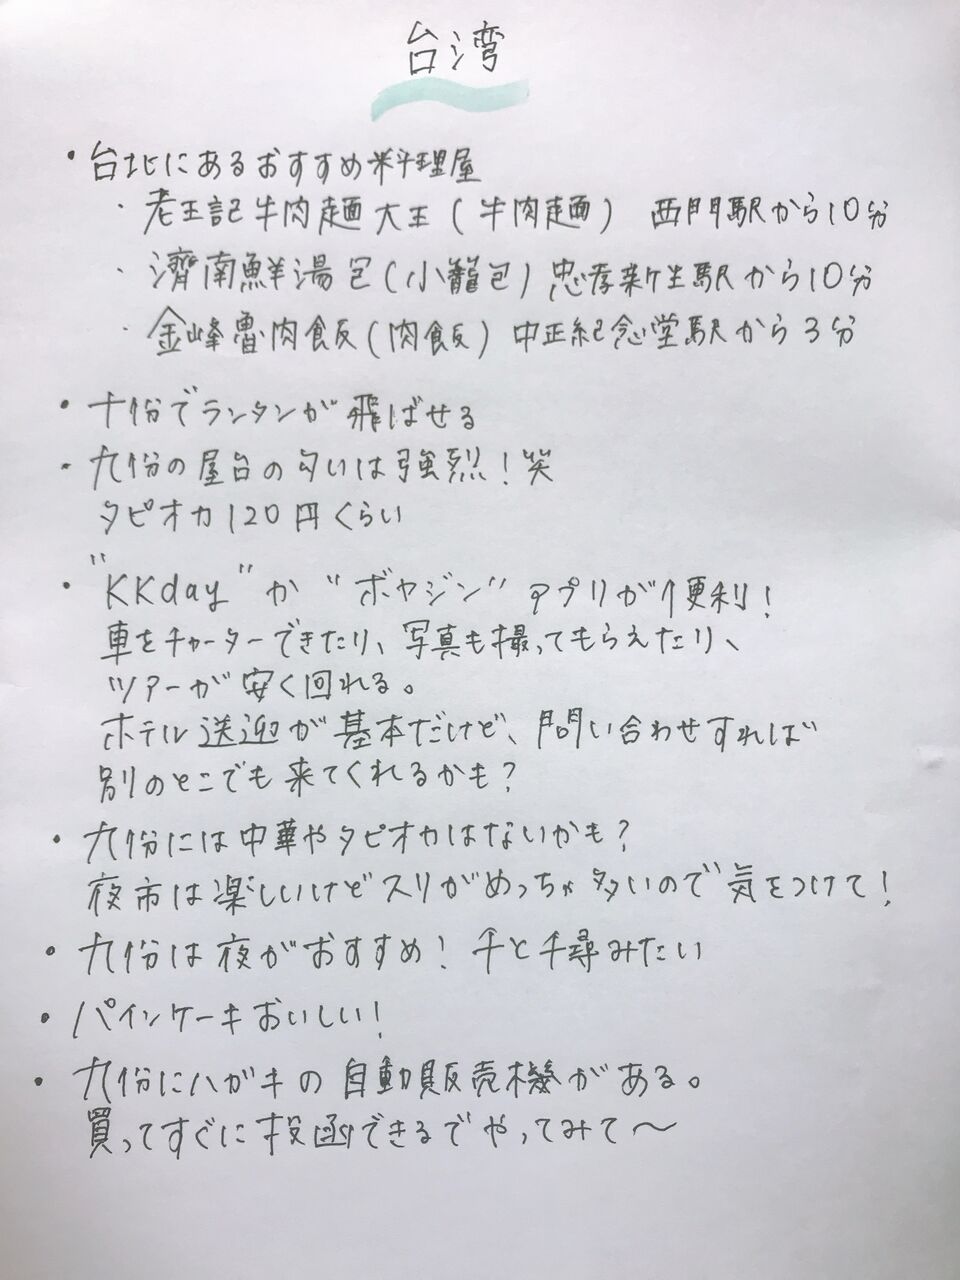 台湾
・台北にあるおすすめ料理屋
・老王記牛肉麺大王(牛肉麺) 西門駅から10分
・濟南鮮湯包(小籠包)忠孝新生駅から10分
・金峰魯肉飯(肉飯)中正紀念堂駅から3分
・十份でランタンが飛ばせる
・九份の屋台の匂いは強烈!笑
タピオカ120円くらい
・"KKday"か"ボヤジン"アプリが便利!
車をチャーターできたり、写真も撮ってもらえたり、
ツアーが安く回れる。
ホテル送迎が基本だけど、問い合わせすれば
別のとこでも来てくれるかも?
・九份には中華やタピオカはないかも?
夜市は楽しいけどスリがめっちゃ多いので気をつけて!
・九份は夜がおすすめ!千と千尋みたい
・パインケーキおいしい!
・九份にハガキの自動販売機がある。
買ってすぐに投函できるでやってみて〜